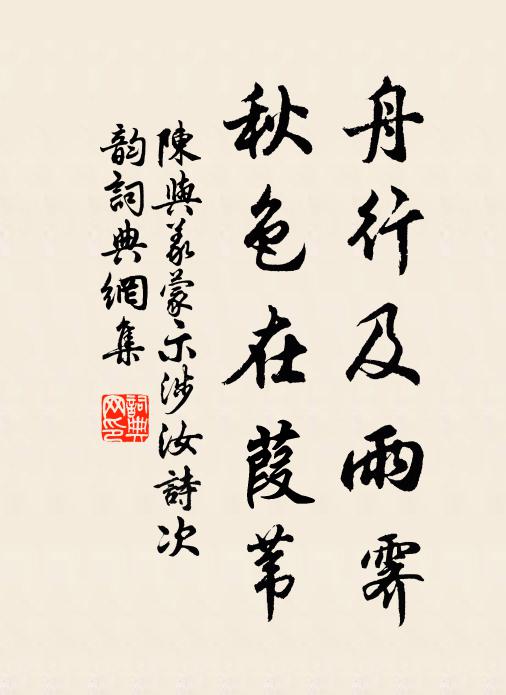 舟行及雨霽
秋色在葭苇
陳與義蒙示涉汝詩次
韵詞典網集
詞典
网印